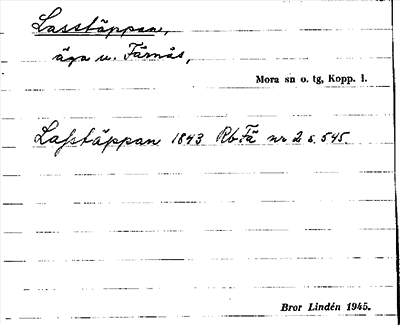 Lasstäppan,
äga u. Färnäs,
Mora sn o. tg, Kopp. l.
Lasstäppan 1843 Rb Fä nr 2 s. 545.
Bror Lindén 1945.